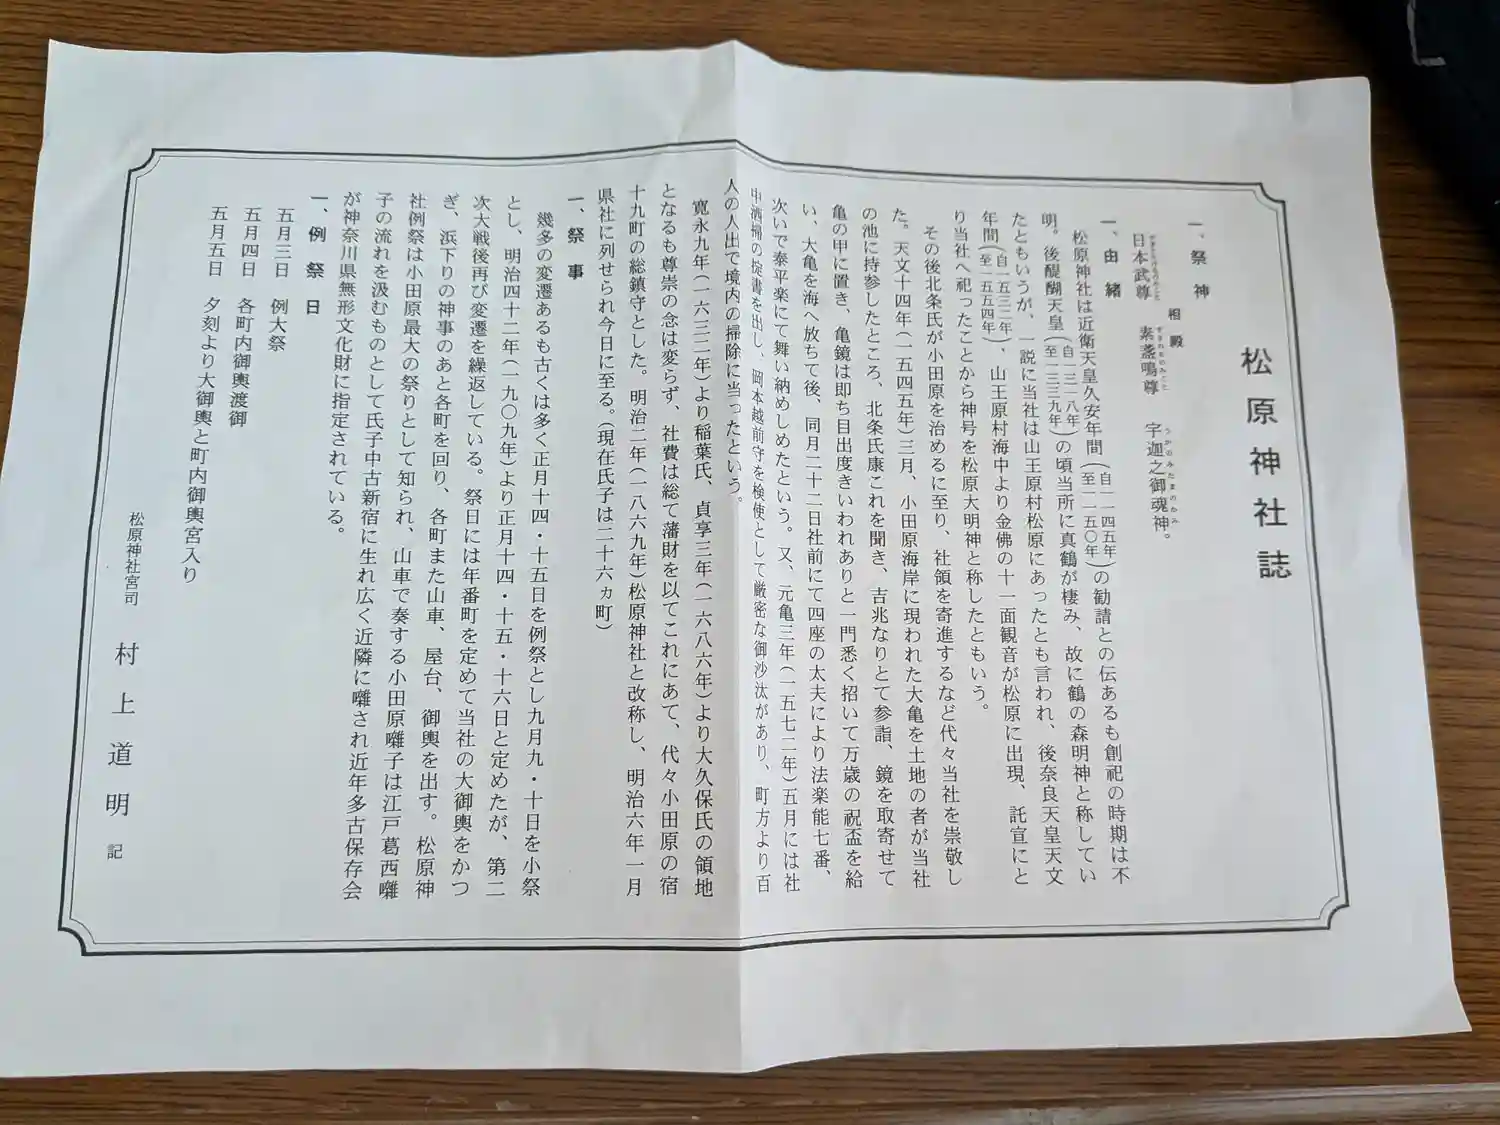 松原神社誌
一、祭神
日本武尊 相殿 素盞鳴尊 宇迦之御魂神。
やまとたけるのみこと すさのおのみこと うかのみたまのかみ
一、由緒
松原神社は近衛天皇久安年間(自一一四五年 至一一五〇年)の勧請との伝あるも創祀の時期は不
明。後醍醐天皇(自一三一八年 至一三三九年)の頃当所に真鶴が棲み、故に鶴の森明神と称してい
たともいうが、一説に当社は山王原村松原にあったとも言われ、後奈良天皇天文
年間(自一五三二年 至一五五四年)、山王原村海中より金佛の十一面観音が松原に出現、託宣によ
り当社へ祀ったことから神号を松原大明神と称したともいう。
その後北条氏が小田原を治めるに至り、社領を寄進するなど代々当社を崇敬し
た。天文十四年(一五四五年)三月、小田原海岸に現われた大亀を土地の者が当社
の池に持参したところ、北条氏康これを聞き、吉兆なりとて参詣、鏡を取寄せて
亀の甲に置き、亀鏡は即ち目出度きいわれありと一門悉く招いて万歳の祝盃を給
い、大亀を海へ放ちて後、同月二十二日社前にて四座の太夫により法楽能七番、
次いで泰平楽にて舞い納めしめたという。又、元亀三年(一五七二年)五月には社
中洒掃の掟書を出し、岡本越前守を検使として厳密な御沙汰があり、町方より百
人の人出で境内の掃除に当ったという。
寛永九年(一六三二年)より稲葉氏、貞享三年(一六八六年)より大久保氏の領地
となるも尊崇の念は変らず、社費は総て藩財を以てこれにあて、代々小田原の宿
十九町の総鎮守とした。明治二年(一八六九年)松原神社と改称し、明治六年一月
県社に列せられ今日に至る。(現在氏子は二十六ヵ町)
一、祭事
幾多の変遷あるも古くは多く正月十四・十五日を例祭とし九月九・十日を小祭
とし、明治四十二年(一九〇九年)より正月十四・十五・十六日と定めたが、第二
次大戦後再び変遷を繰返している。祭日には年番町を定めて当社の大御輿をかつ
ぎ、浜下りの神事のあと各町を回り、各町また山車、屋台、御輿を出す。松原神
社例祭は小田原最大の祭りとして知られ、山車で奏する小田原囃子は江戸葛西囃
子の流れを汲むものとして氏子中古新宿に生れ広く近隣に囃され近年多古保存会
が神奈川県無形文化財に指定されている。
一、例祭日
五月三日 例大祭
五月四日 各町内御輿渡御
五月五日 夕刻より大御輿と町内御輿宮入り
松原神社宮司 村上道明 記